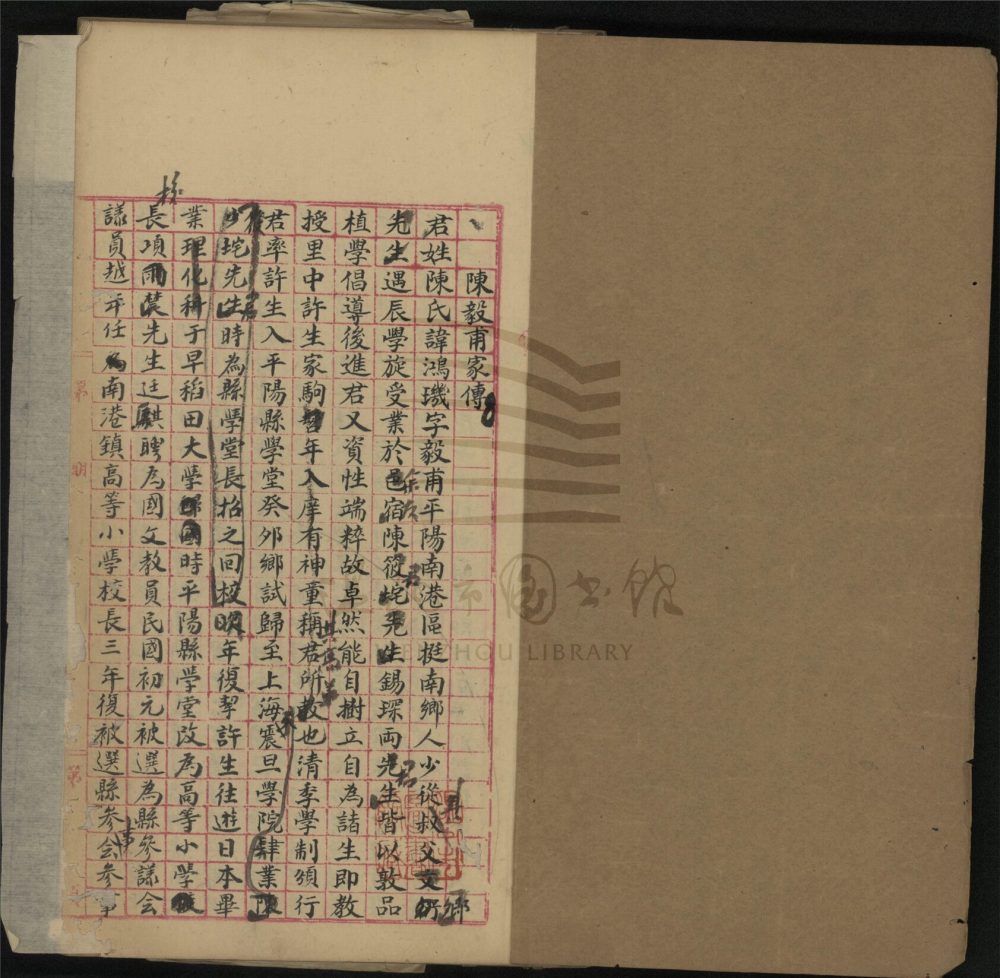 陳毅甫家傳
君姓陳氏諱鴻璣字毅甫平陽南港區挺南鄉人少從叔父
先生遇辰學旋受業於邑宿陳筱垞先生錫琛兩先生皆以敦品
植學倡導後進君又資性端粹故卓然能自樹立自為諸生即教
授里中許生家駒年入庠有神童稱君所教也清季學制頒行
君率許生入平陽縣學堂癸卯鄉試歸至上海震旦學院肄業陳
少垞先生時為縣學堂長招之回校明年復挈許生往遊日本畢
業理化科于早稻田大學時平陽縣學堂改為高等小學校
長項先生廷騏聘為國文教員民國初元被選為縣參議会
議員越年任南港鎮高等小學校長三年復被選縣參会參事
校
事
温州市图书馆
WENZHOU LIBRARY